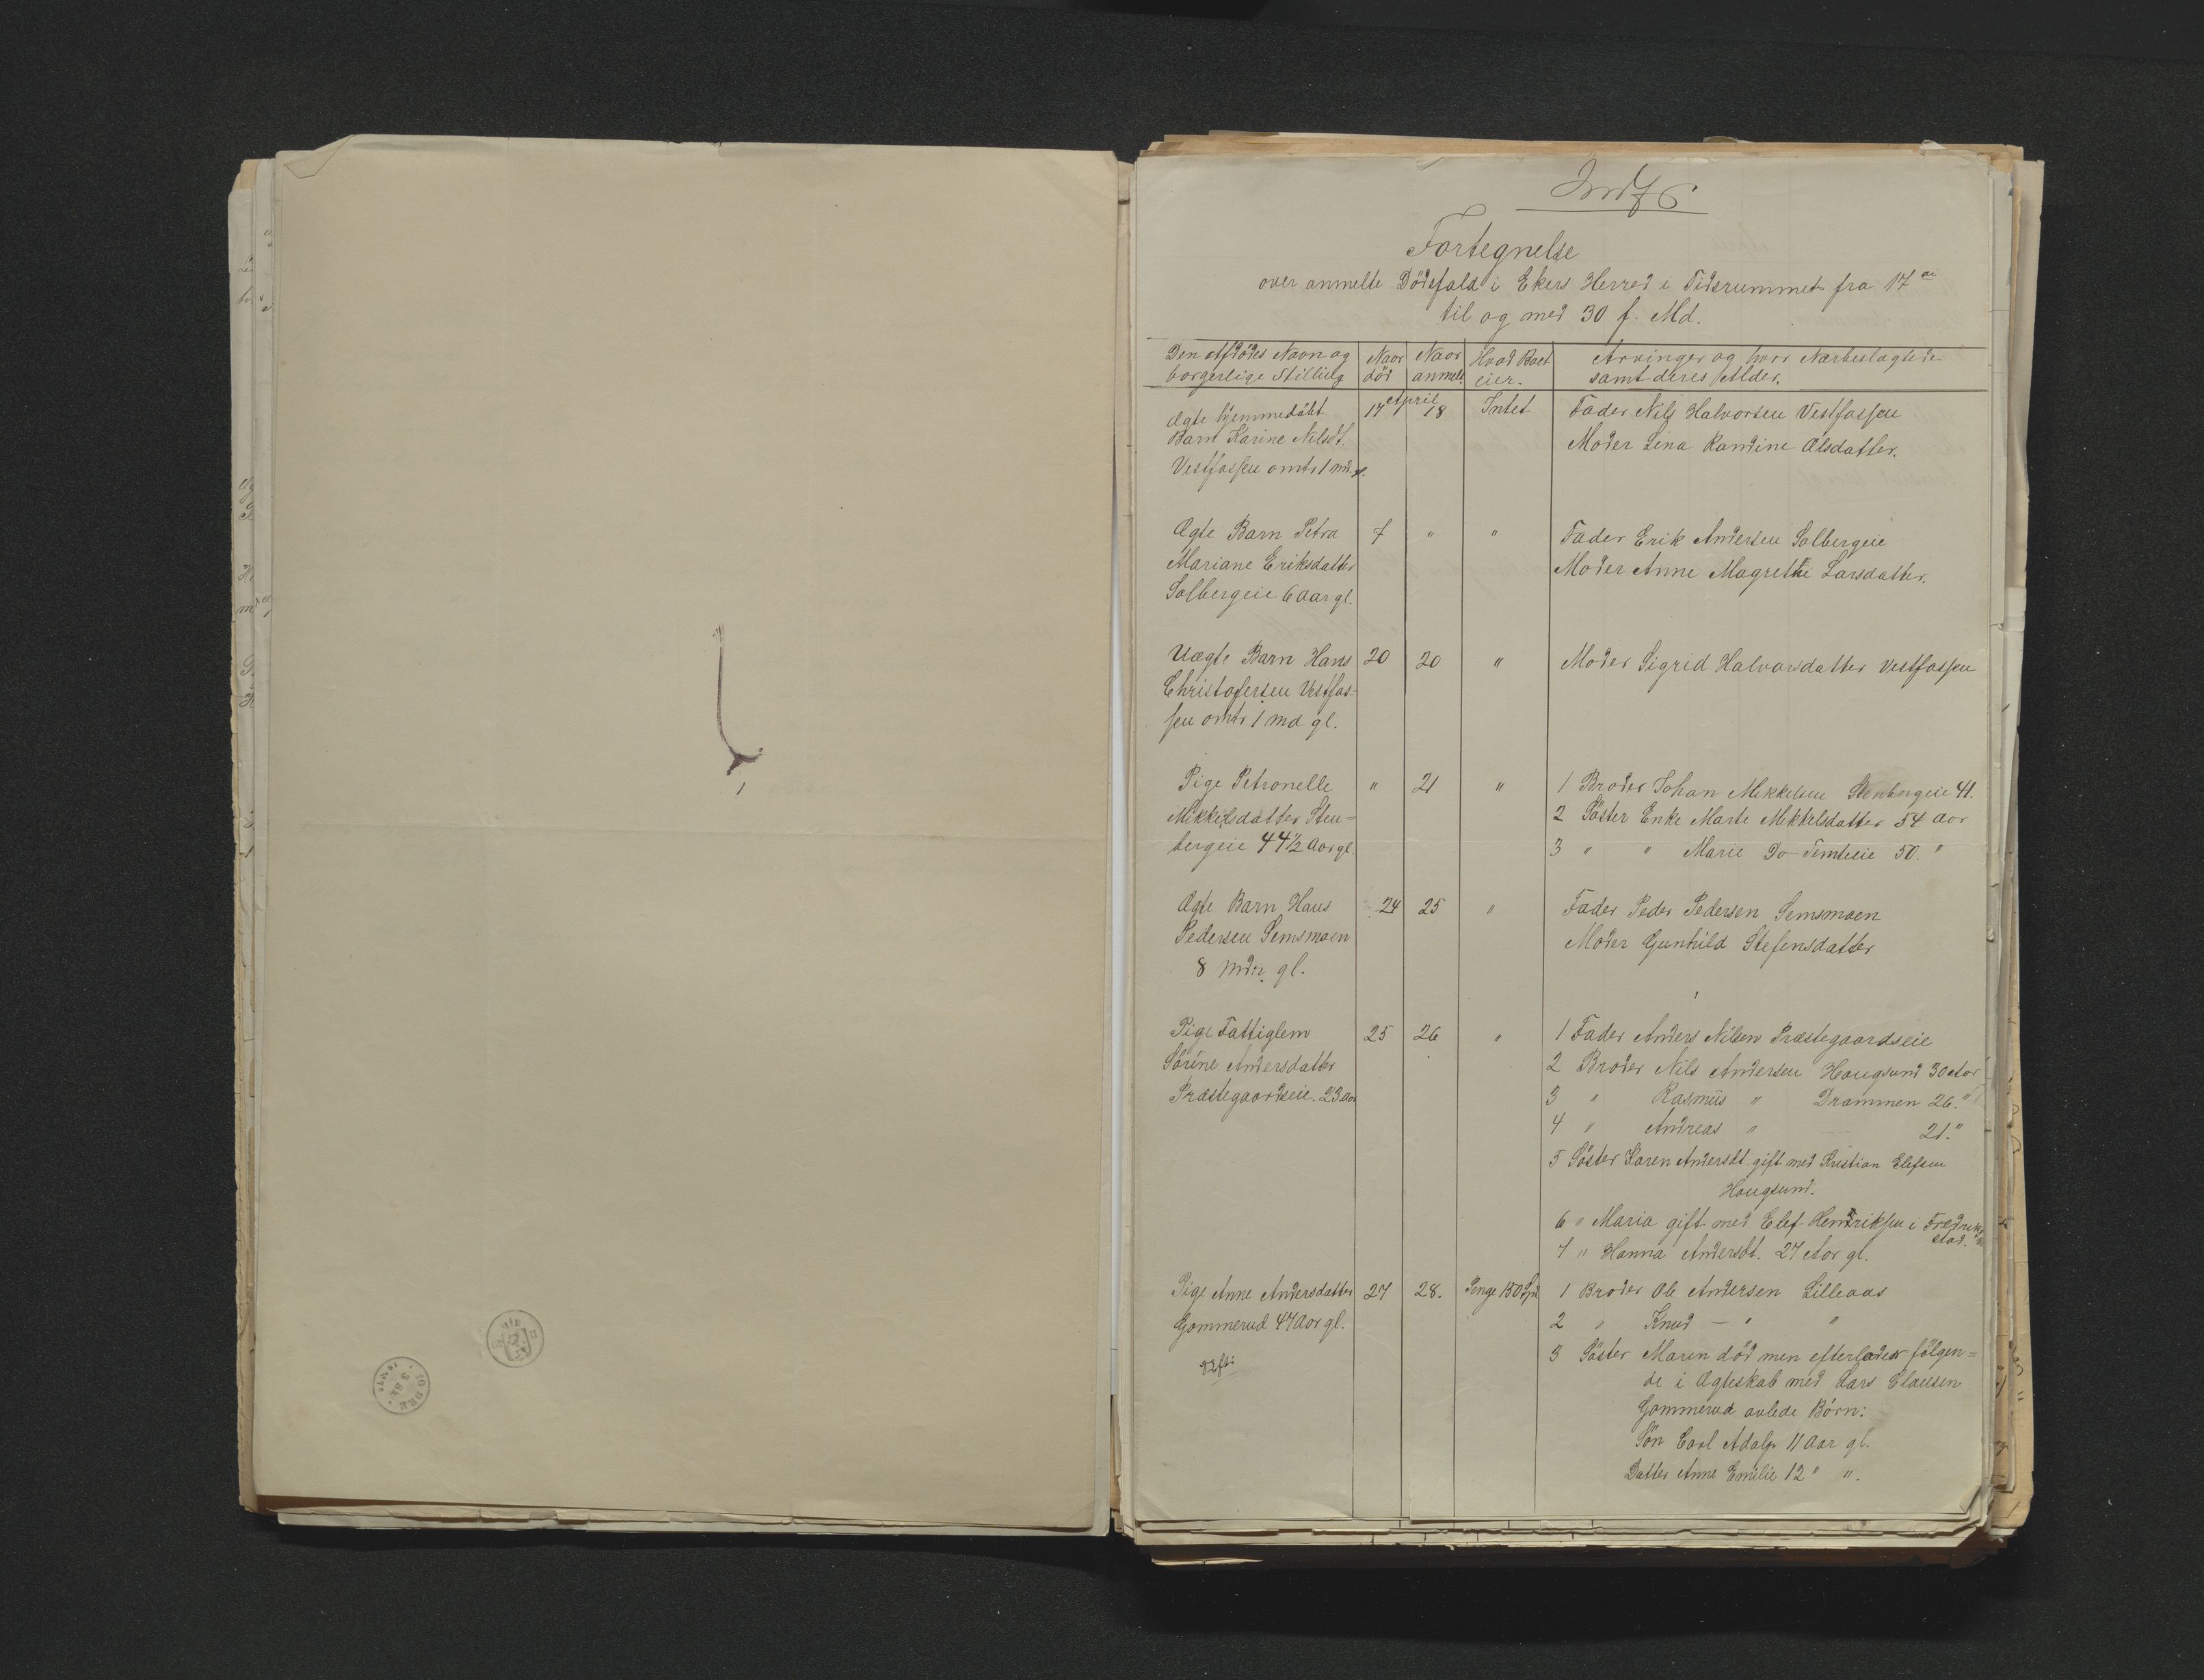 Fortegnelse
over anmelte Dödsfald i Ekers Herred i Tidsrummet fra 17de
til og med 30 f. Md.
Den Afdödes Navn og borgerlige Stilling | Naar död | Naar anmelt. | Hvad Boet eier. | Arvinger og hvor Nærbeslægtede samt deres Alder.
April
Ægte hjemmedöbt | 17 | 18 | Intet | Fader Nils Halvorsen Vestfossen
Barn Karine Nilsdt. | Moder Lina Randine Olsdatter.
Vestfossen omtr 1 md. gl.
Ægte Barn Petra | 7 | " | " | Fader Erik Andersen Solbergeie
Mariane Eriksdatter | Moder Anne Magrethe Larsdatter.
Solbergeie 6 aar gl.
Uægte Barn Hans | 20 | 20 | " | Moder Sigrid Halvorsdatter Vestfossen
Christofersen Vestfos-
sen omtr 1 md gl.
Pige Petronelle | " | 21 | " | 1 Broder Johan Mikkelsen Stenbergeie 41.
Mikkelsdatter Sten= | 2 Söster Enke Marte Mikkelsdatter 54 Aar
bergeie 44 1/2 Aar gl. | 3 " " Marie Do 50. "
Ægte Barn Hans | 24 | 25 | " | Fader Peder Pedersen Semsmoen
Pedersen Semsmoen | Moder Gunhild Stefensdatter
8 mdr. gl.
Pige Fattiglem | 25 | 26 | " | 1 Fader Anders Nilsen Præstegaardseie
Sörine Andersdatter | 2 Broder Nils Andersen Hougsund 30 Aar
Præstegaardseie. 23 Aar | 3 " Rasmus " Drammen 26. "
4 " Andreas " 21. "
5 Söster Karen Andersdt. gift med Kristian Elefsen
Hougsund.
6 " Maria gift med Elef Hendriksen i Fredrik
stad.
7 " Hanna Andersdt. 27 Aar gl.
Pige Anne Andersdatter | 27 | 28. | Penge 150 Spd | 1 Broder Ole Andersen Lilleaas
Gommerud 47 Aar gl. | 2 " Knud — " "
3 Söster Maren död men efterlader fölgen=
de i Ægteskab med Lars Clausen
Gommerud avlede Börn:
Sön Carl Adolf 11 Aar gl.
Datter Anne Emilie 12 " ".